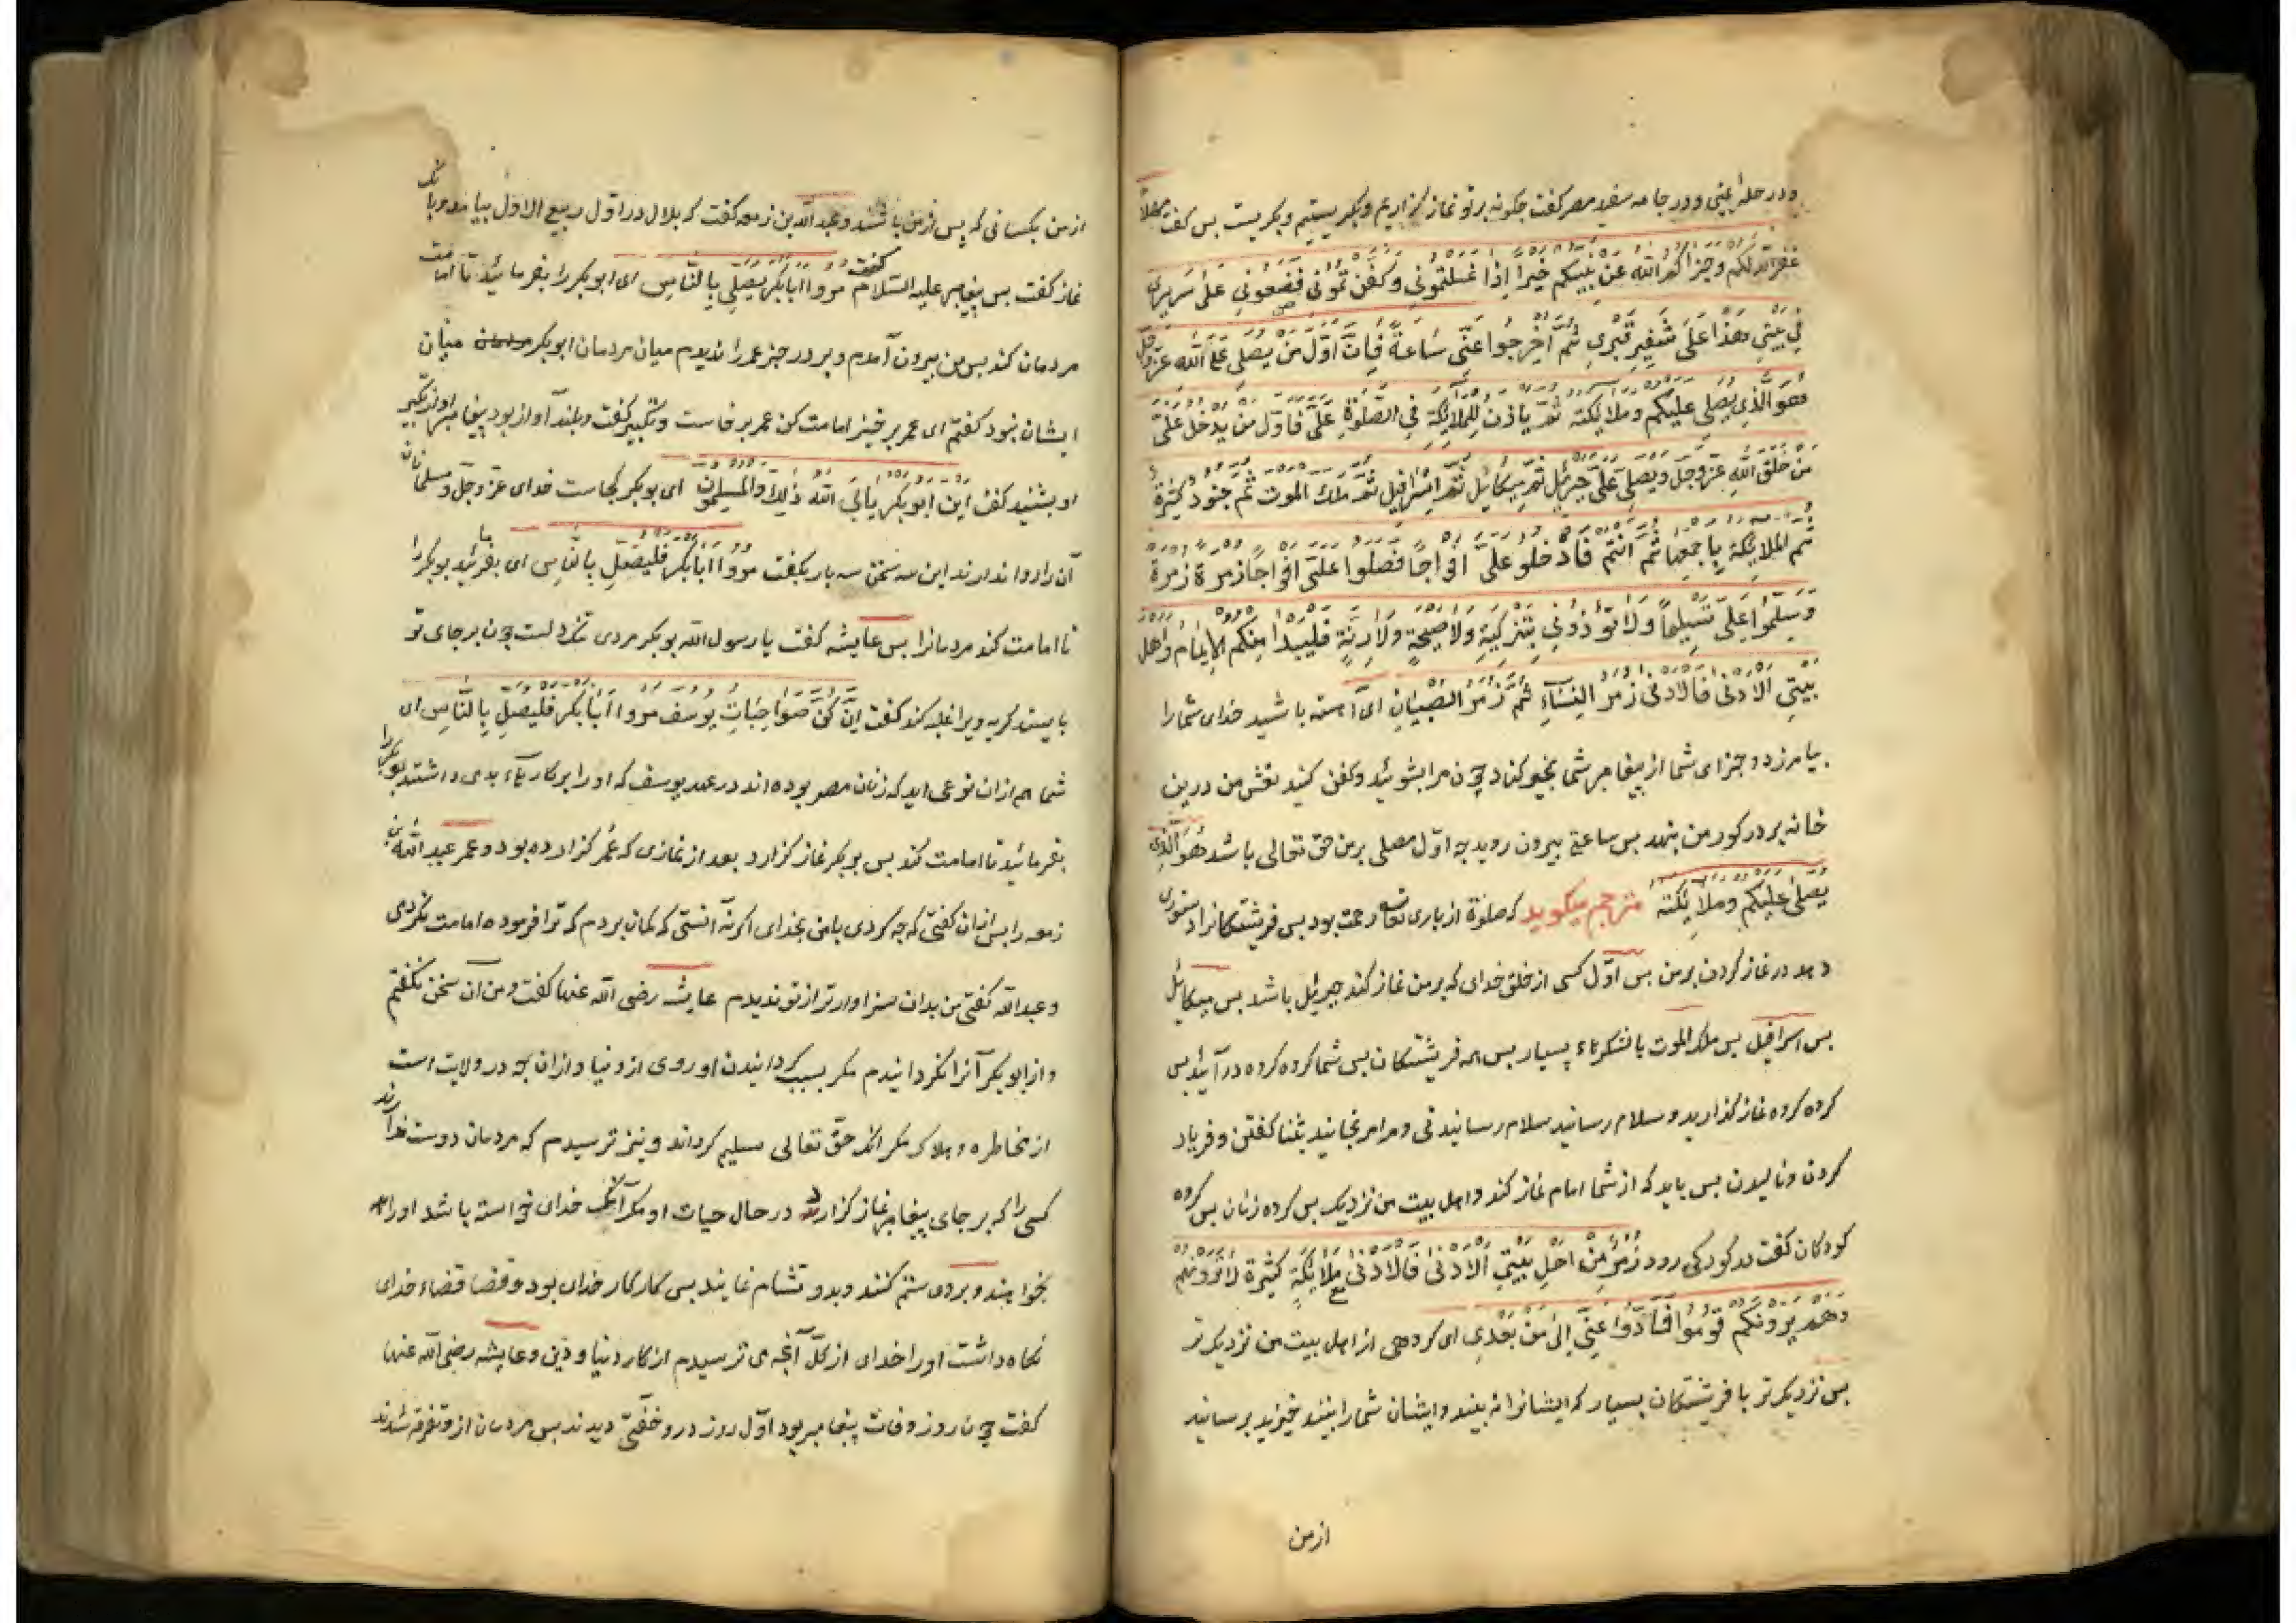 ودر حلهٔ یمنی ودر جامه سفید مصر گفت چگونه بر تو نماز گزاریم وبگریستیم وبگریست پس گفت مهلاً
غفر الله لکم وجزاکم الله عن نبیکم خیراً اذا غسلتمونی وکفنتمونی فضعونی علی سریری
فی بیتی هذا علی شفیر قبری ثم اخرجوا عنی ساعة فان اول من یصلی علی الله عز وجل
هو الذی یصلی علیکم وملائکته ثم یاذن للملائکة فی الصلوة علی فاول من یدخل علی
من خلق الله عز وجل ویصلی علی جبرئیل ثم میکائیل ثم اسرافیل ثم ملک الموت ثم جنود کثیرة
ثم الملائکة باجمعها ثم انتم فادخلوا علی افواجاً فصلوا علی افواجاً زمرة زمرة
وسلموا علی تسلیماً ولا تؤذونی بتزکیة ولا صیحة ولا رنة فلیبدا منکم الامام واهل
بیتی الادنی فالادنی زمر النساء ثم زمر الصبیان ای آهسته باشید خدای شما را
بیامرزد وجزای شما از پیغامبر شما بخیر کناد چون مرا بشوئید وکفن کنید نعش من درین
خانه بر در گور من بنهید پس ساعتی بیرون روید چه اول مصلی بر من حق تعالی باشد هو الذی
یصلی علیکم وملائکته مترجم میگوید که صلوة از باری تعالی رحمت بود پس فرشتگانرا دستوری
دهد در نماز کردن بر من پس اول کسی از خلق خدای که بر من نماز کند جبرئیل باشد پس میکائیل
پس اسرافیل پس ملک الموت با لشکرهاء بسیار پس همه فرشتگان پس شما گروه گروه در آئید پس
گروه گروه نماز گذارید وسلام رسانید سلام رسانیدنی ومرا مرنجانید بثنا گفتن وفریاد
کردن ونالیدن پس باید که از شما امام نماز کند واهل بیت من نزدیک پس گروه زنان پس گروه
کودکان گفت در گور کی رود زمر من اهل بیتی الادنی فالادنی مع ملائکة کثیرة لا ترونهم
وهم یرونکم قوموا فادوا عنی الی من بعدی ای گروهی از اهل بیت من نزدیکتر
پس نزدیکتر با فرشتگان بسیار که ایشانرا نه بینید وایشان شما را بینند خیزید برسانید
از من
از من بکسانی که پس از من باشند وعبد الله بن زمعه گفت که بلال در اول ربیع الاول بیامد وبانگ
نماز گفت پس پیغامبر علیه السلام گفت مروا ابابکر یصلی بالناس ای ابوبکر را بفرمائید تا امامت
مردمان کند پس من بیرون آمدم وبر در جز عمر را ندیدم میان مردمان ابوبکر میان
ایشان نبود گفتم ای عمر برخیز امامت کن عمر برخاست وتکبیر گفت وبلند آواز بود پیغامبر آواز تکبیر
او بشنید گفت این ابوبکر یابی الله ذلک والمسلمون ای بوبکر کجاست خدای عز وجل ومسلمانان
آن را روا ندارند این سه سخن سه بار بگفت مروا ابابکر فلیصل بالناس ای بفرمائید بوبکر را
تا امامت کند مردمانرا پس عایشه گفت یا رسول الله بوبکر مردی تنگ دلست چون بر جای تو
بایستد گریه ویرا غلبه کند گفت انکن صواحبات یوسف مروا ابابکر فلیصل بالناس ای
شما هم ازان نوعی اید که زنان مصر بوده اند در عهد یوسف که او را بر کارهاء بدی داشتند بوبکر را
بفرمائید تا امامت کند پس بوبکر نماز گزارد بعد از نمازی که عمر گزارده بود وعمر عبد الله بن
زمعه را پس ازان گفتی که چه کردی با من بخدای اگر نه آنستی که گمان بردم که ترا فرموده امامت نکردمی
وعبد الله گفتی من بدان سزاوارتر از تو ندیدم عایشه رضی الله عنها گفت ومن آن سخن نگفتم
واز ابوبکر آنرا نگردانیدم مگر بسبب گردانیدن او روی از دنیا وازان چه در ولایت است
از مخاطره وهلاک مگر آنکه حق تعالی مسلم گرداند ونیز ترسیدم که مردمان دوست ندارند
کسی را که بر جای پیغامبر نماز گزارد در حال حیات او مگر آنکه خدای خواسته باشد او را
بخواهند وبر وی ستم کنند وبدو تشام نمایند پس کار کار خدای بود وقضا قضاء خدای
نگاه داشت او را خدای از کل آنچه می ترسیدم از کار دنیا ودین وعایشه رضی الله عنها
گفت چون روز وفات پیغامبر بود اول روز درو خفتی دیدند پس مردمان ازو متفرق شدند